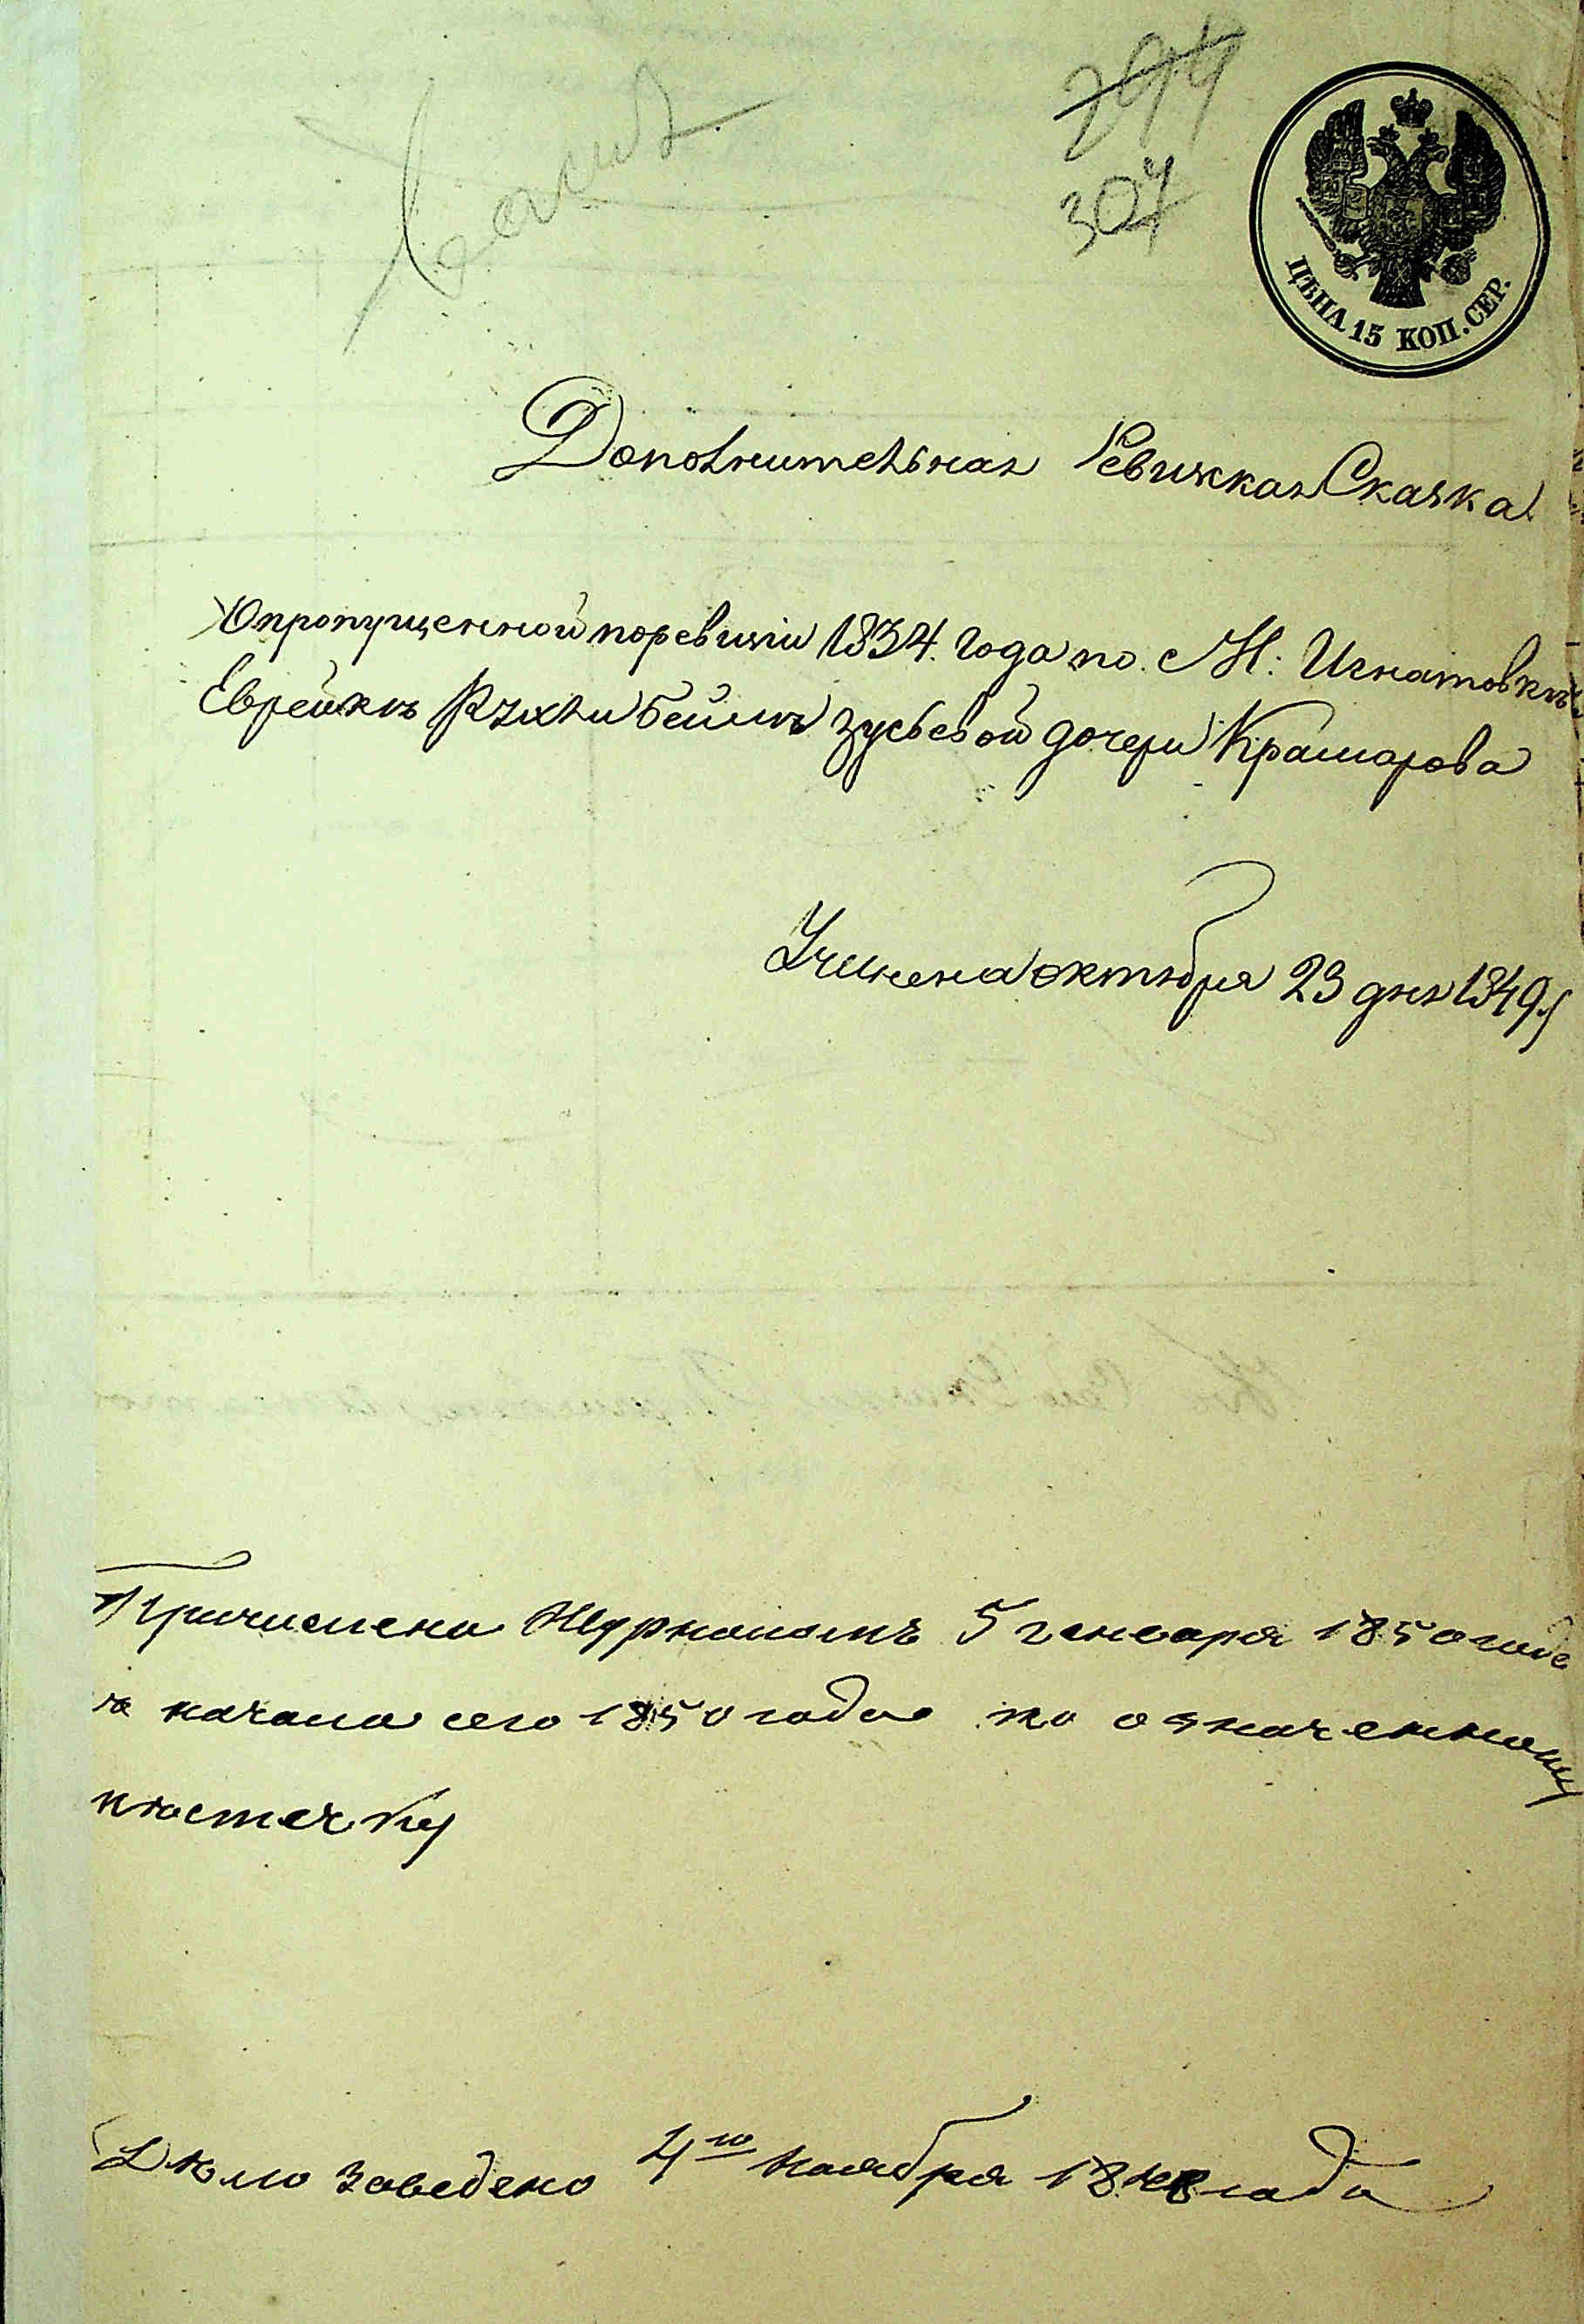 307
ЦѢНА 15 КОП. СЕР.
Дополнительная Ревижкая Сказка
О пропущенной по ревизіи 1834. года по М: Игнатовкѣ
Еврейкѣ Рухли Бейлѣ Зусьевой дочери Крамарова
Учинена октября 23 дня 1849
Причислена Журналомъ 5 генваря 1850 года
съ начала сего 1850 года по означенному
мѣстечку
Дѣло заведено 4го ноября года